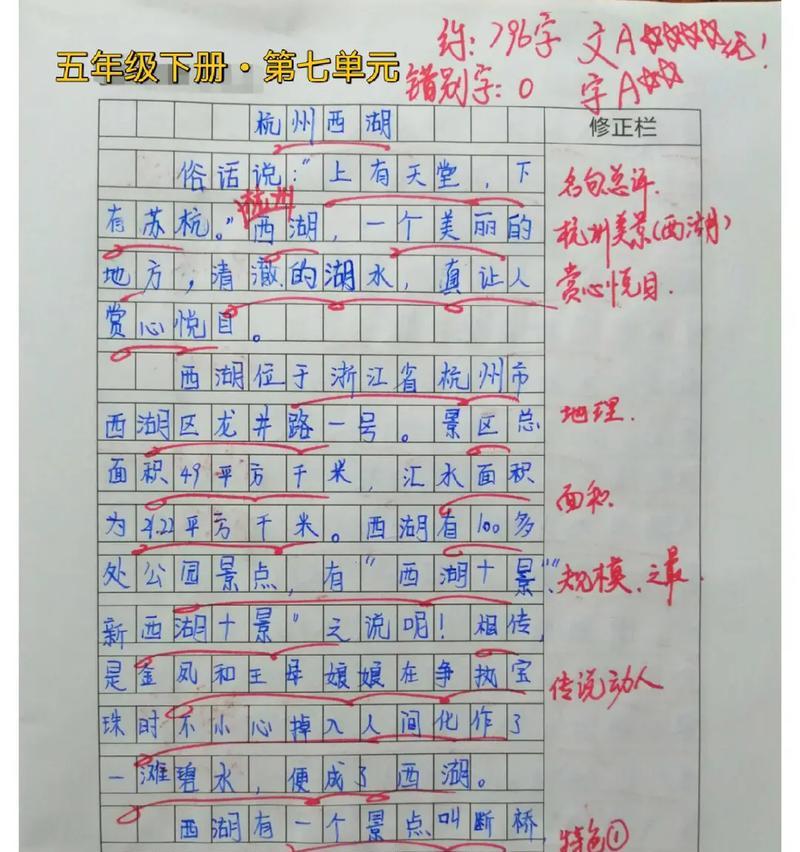 约:796字 文A☆☆☆☆☆!
五年级下册·第七单元
错别字:0 字A☆☆
杭州西湖
修正栏
俗话说:“上有天堂,下
有苏杭。”西湖,一个美丽的
杭州
地方,清澈的湖水,真让人
赏心悦目。
名句总评.
杭州美景(西湖)
赏心悦目.
西湖位于浙江省杭州市
西湖区龙井路一号。景区总
地理.
面积49平方千米,汇水面积
面积
为21.22平方千米。西湖有100多
处公园景点,有“西湖十景”“
规模.之最.
新西湖十景”之说呢!相传,
是金凤和王母娘娘在争执宝
传说动人
珠时不小心掉入人间化作了
一滩碧水,便成了西湖。
西湖有一个景点叫断桥,
特色①